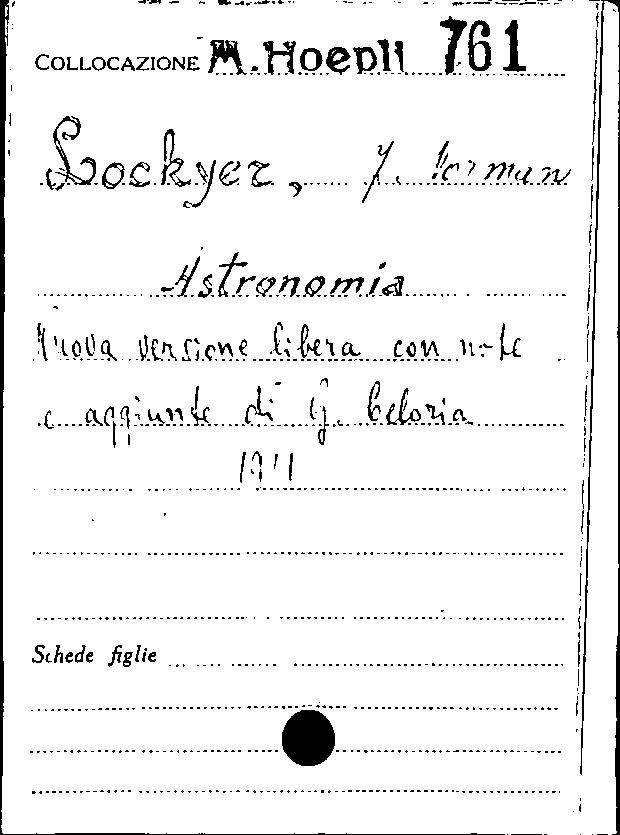 COLLOCAZIONE M. Hoepli 761
Lockyer, J. Norman
Astronomia
Nuova versione libera con note
e aggiunte di G. Celoria
1911
Schede figlie